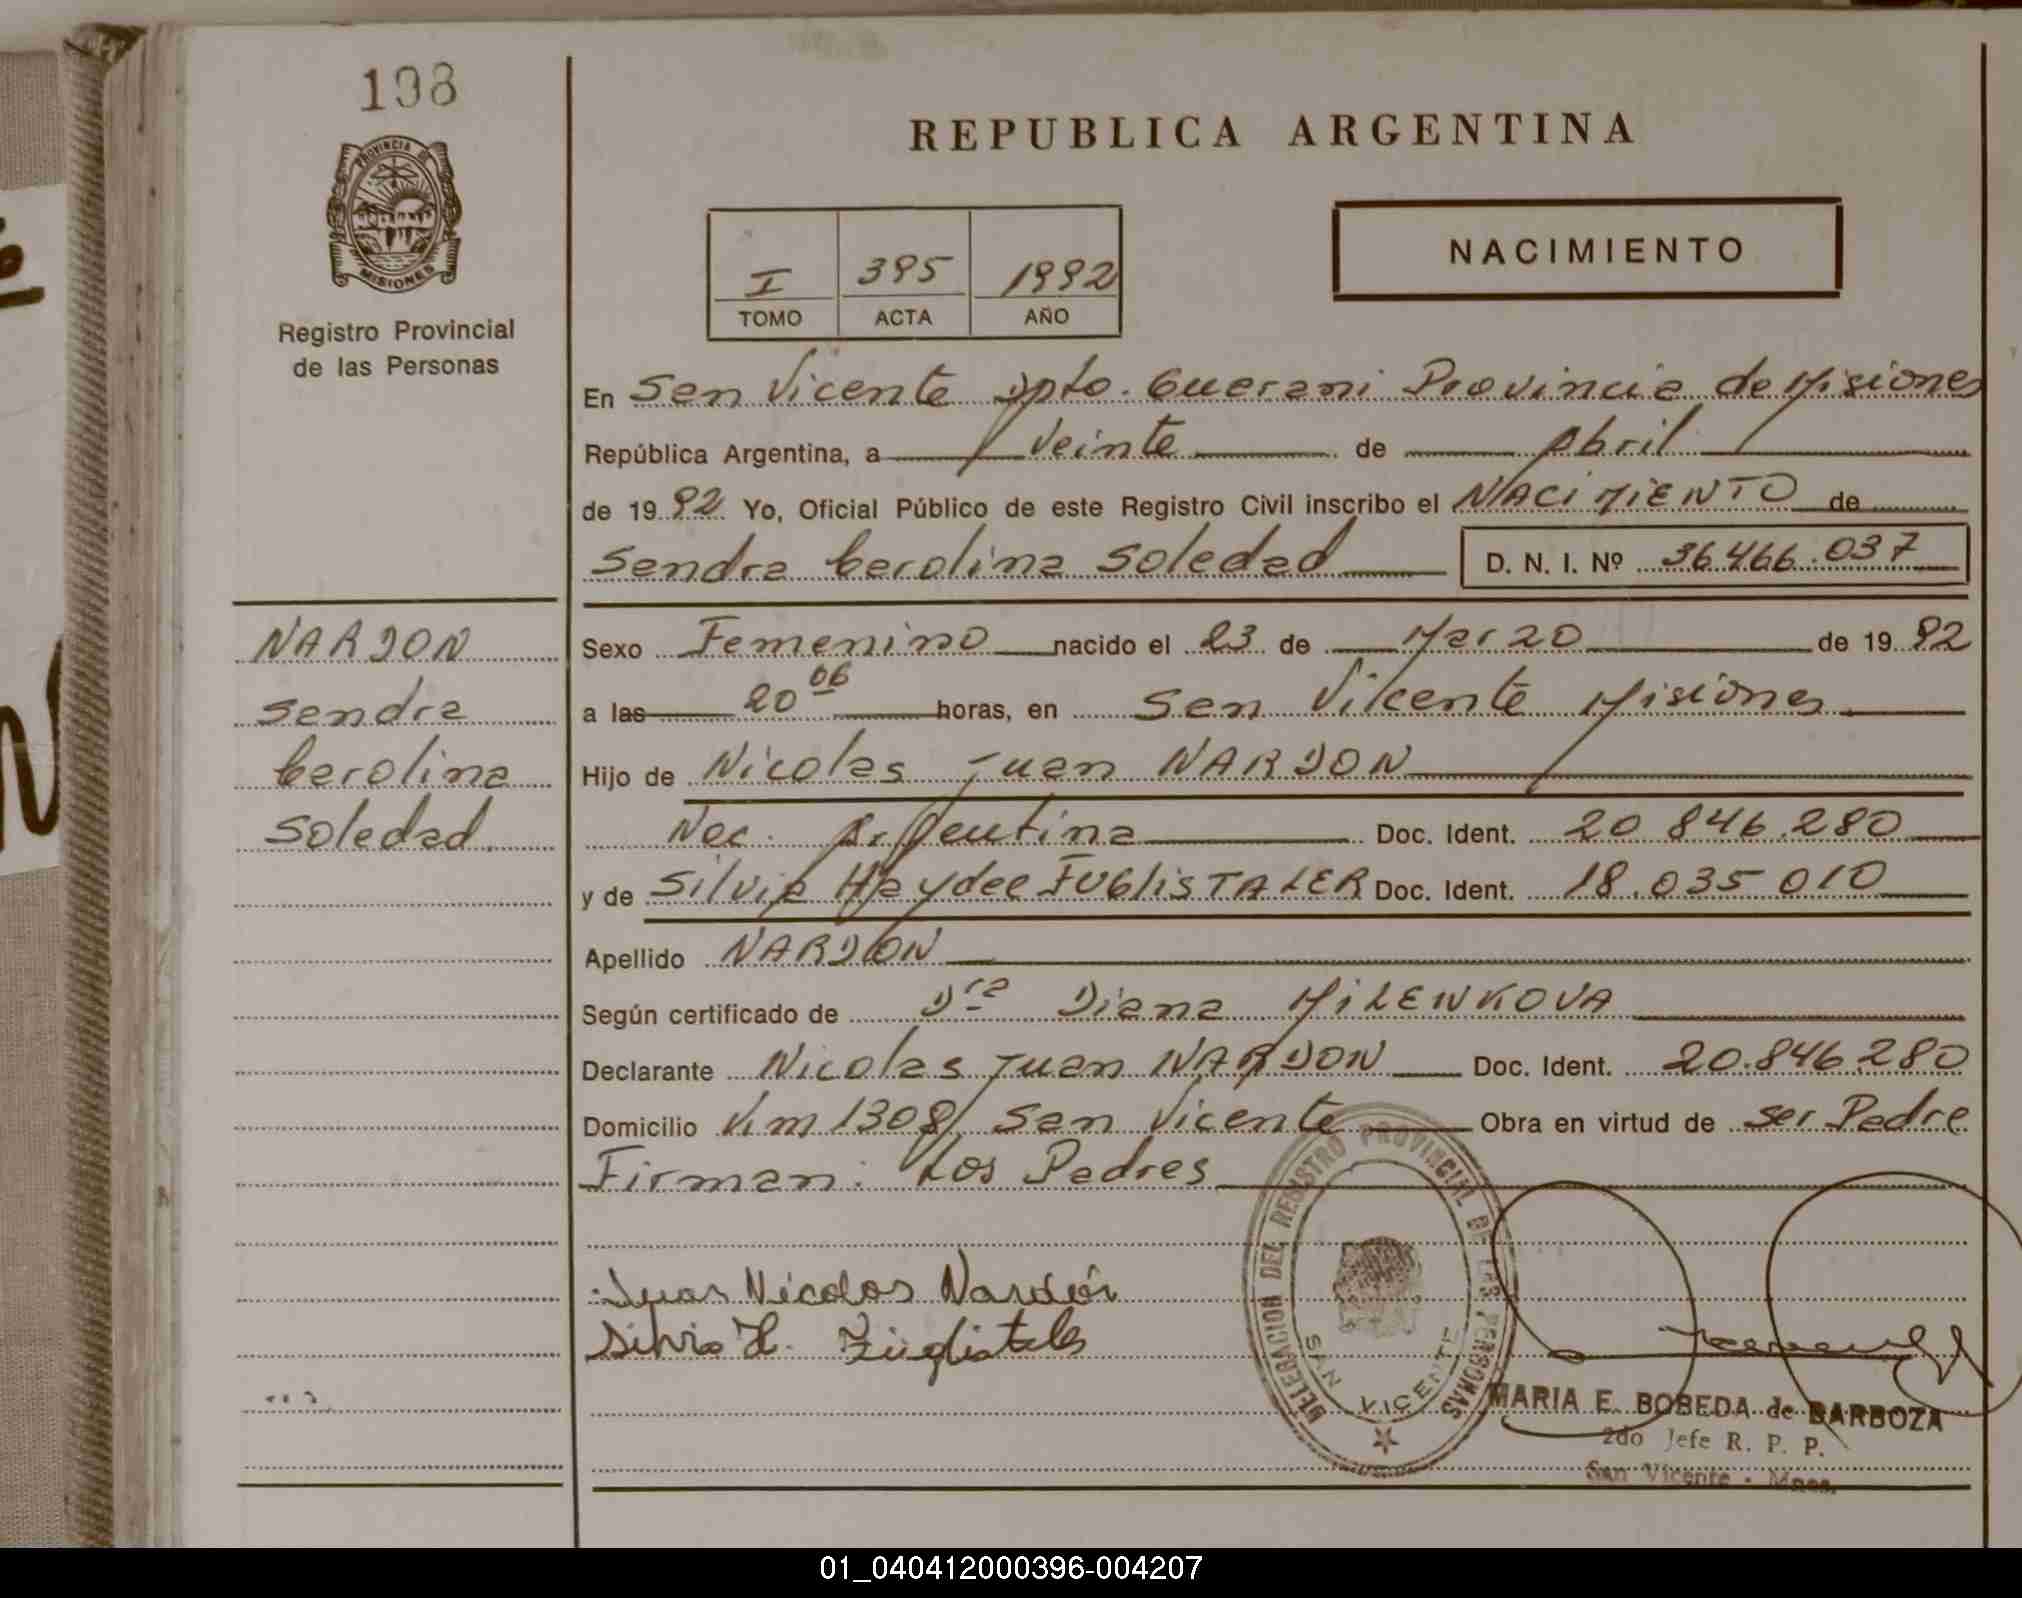 198
PROVINCIA DE
MISIONES
Registro Provincial
de las Personas
REPUBLICA ARGENTINA
I 395 1992
TOMO ACTA AÑO
NACIMIENTO
En San Vicente Dpto. Guarani Provincia de Misiones
República Argentina, a Veinte de Abril
de 1992 Yo, Oficial Público de este Registro Civil inscribo el NACIMIENTO de
Sandra Carolina Soledad D. N. I. Nº 36.466.037
NARDON
Sandra
Carolina
Soledad.
Sexo Femenino nacido el 23 de Marzo de 1992
a las 20 06 horas, en San Vicente Misiones
Hijo de Nicolas Juan NARDON
Nac. Argentina Doc. Ident. 20.846.280
y de Silvia Haydee FUGlisTALER Doc. Ident. 18.035.010
Apellido NARDON
Según certificado de Dra Diana MILENKOVA
Declarante Nicolas Juan NARDON Doc. Ident. 20.846.280
Domicilio Km 1308 San Vicente Obra en virtud de ser Padre
Firman: Los Padres
Juan Nicolas Nardón
Silvia H. Füglistaler
DELEGACION DEL REGISTRO PROVINCIAL DE LAS PERSONAS
SAN VICENTE
MARIA E. BOBEDA de BARBOZA
2do Jefe R. P. P.
San Vicente - Mnes.
01_040412000396-004207